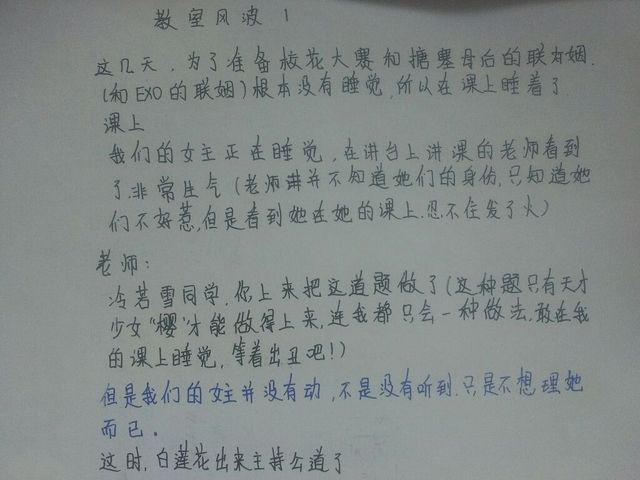 教室风波 1
这几天，为了准备校花大赛和搪塞母后的联姻.
(和EXO的联姻)根本没有睡觉,所以在课上睡着了
课上
我们的女主正在睡觉，在讲台上讲课的老师看到
了.非常生气(老师并不知道她们的身份,只知道她
们不好惹,但是看到她在她的课上.忍不住发了火)
老师：
冷若雪同学.你上来把这道题做了(这种题只有天才
少女"樱"才能做得上来,连我都只会一种做法.敢在我
的课上睡觉,等着出丑吧!)
但是我们的女主并没有动,不是没有听到.只是不想理她
而已.
这时,白莲花出来主持公道了